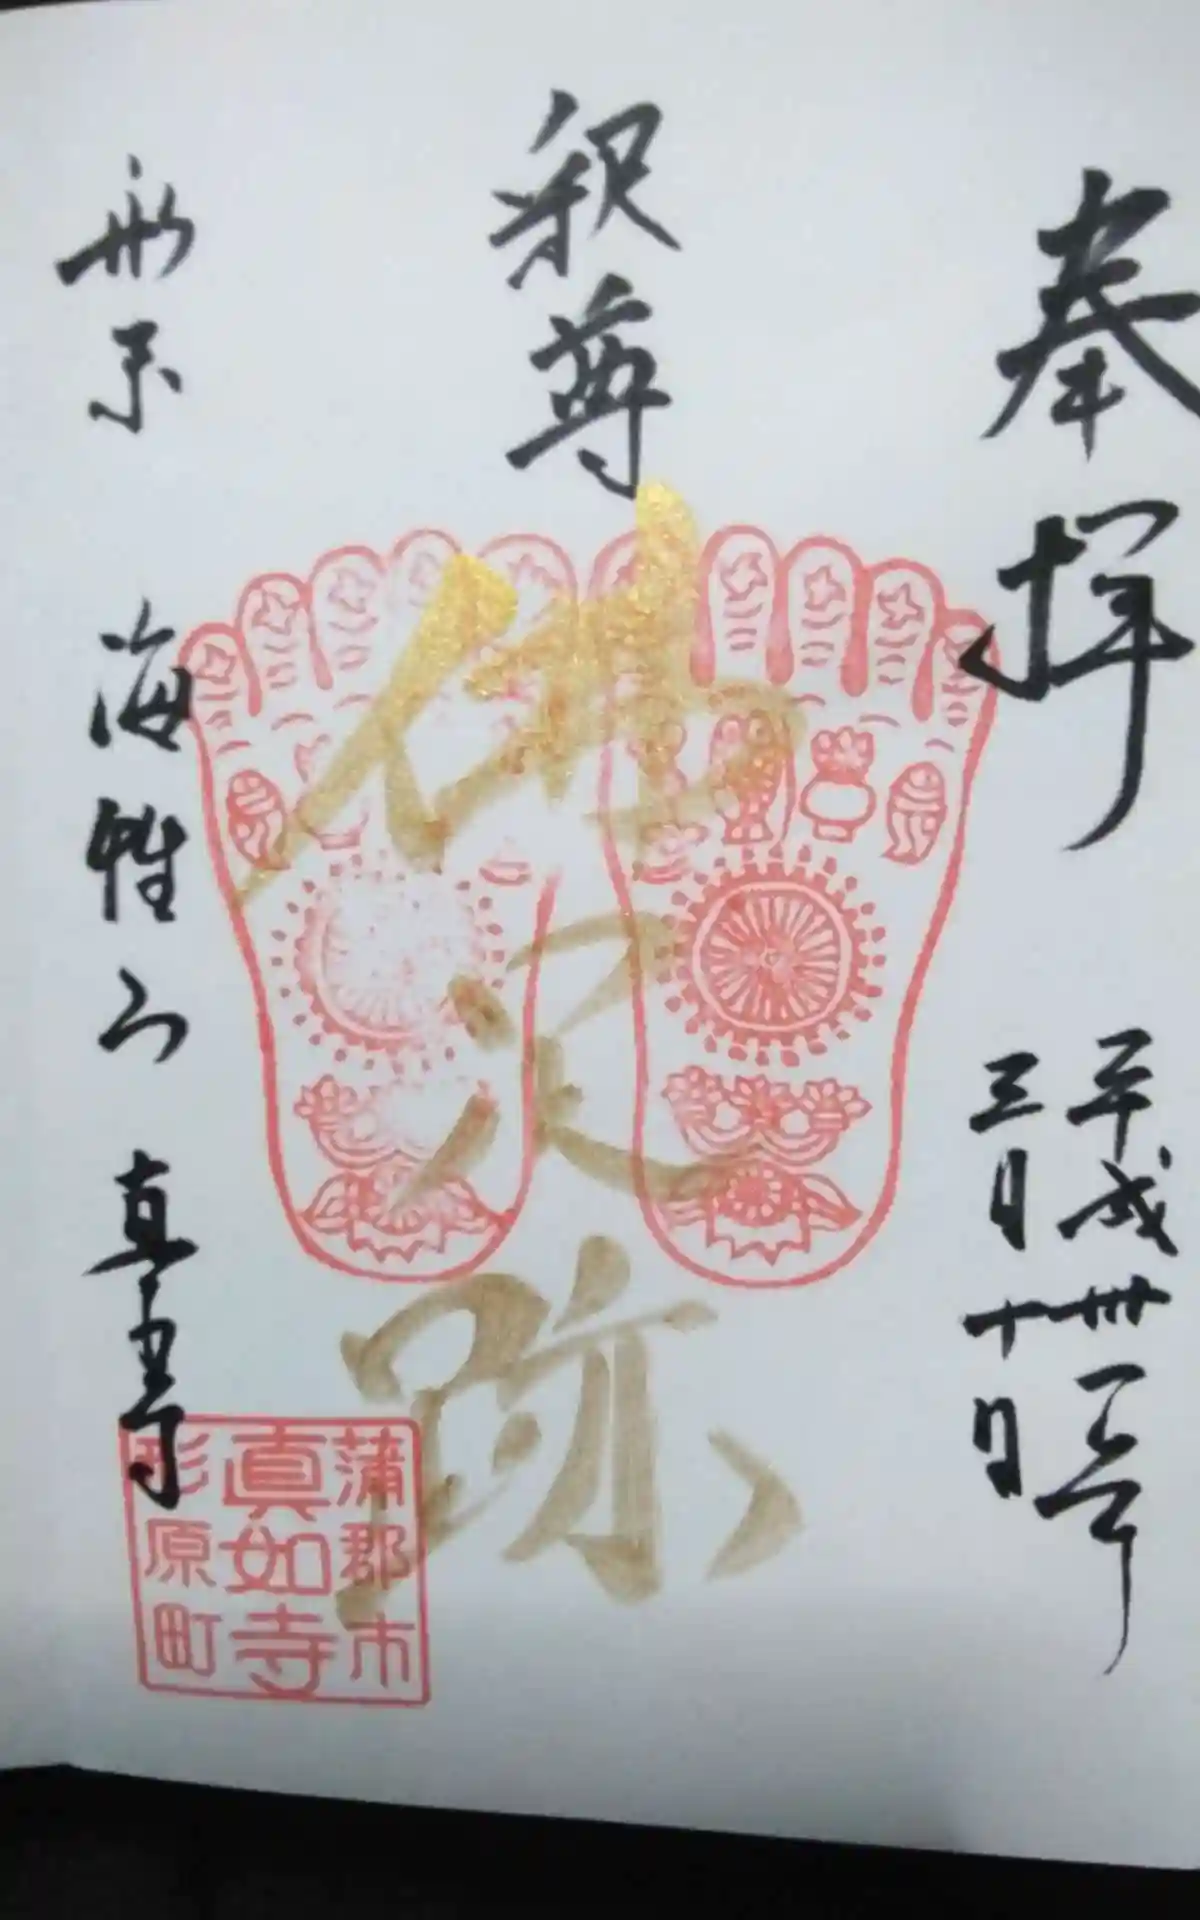 奉拝
平成卅一年
三月十日
釈尊
佛足跡
形原
海性山
真如寺
蒲郡市
真如寺
形原町